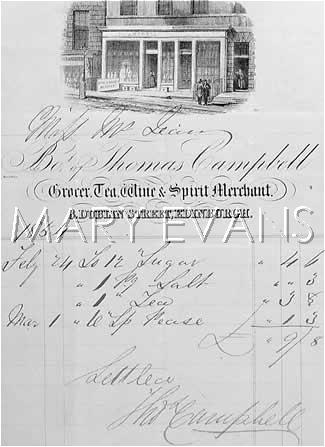 Miss Mc
Bot. of Thomas Campbell
Grocer, Tea, Wine & Spirit Merchant.
8, DUBLIN STREET, EDINBURGH.
MARY EVANS
Feby 24 To 12 " Sugar " 4 6
" 1 Salt " " 3
" 1 " Tea " 3 8
Mar 1 " Pease " 1 3
£ " 9 / 8
Settled
Thos Campbell